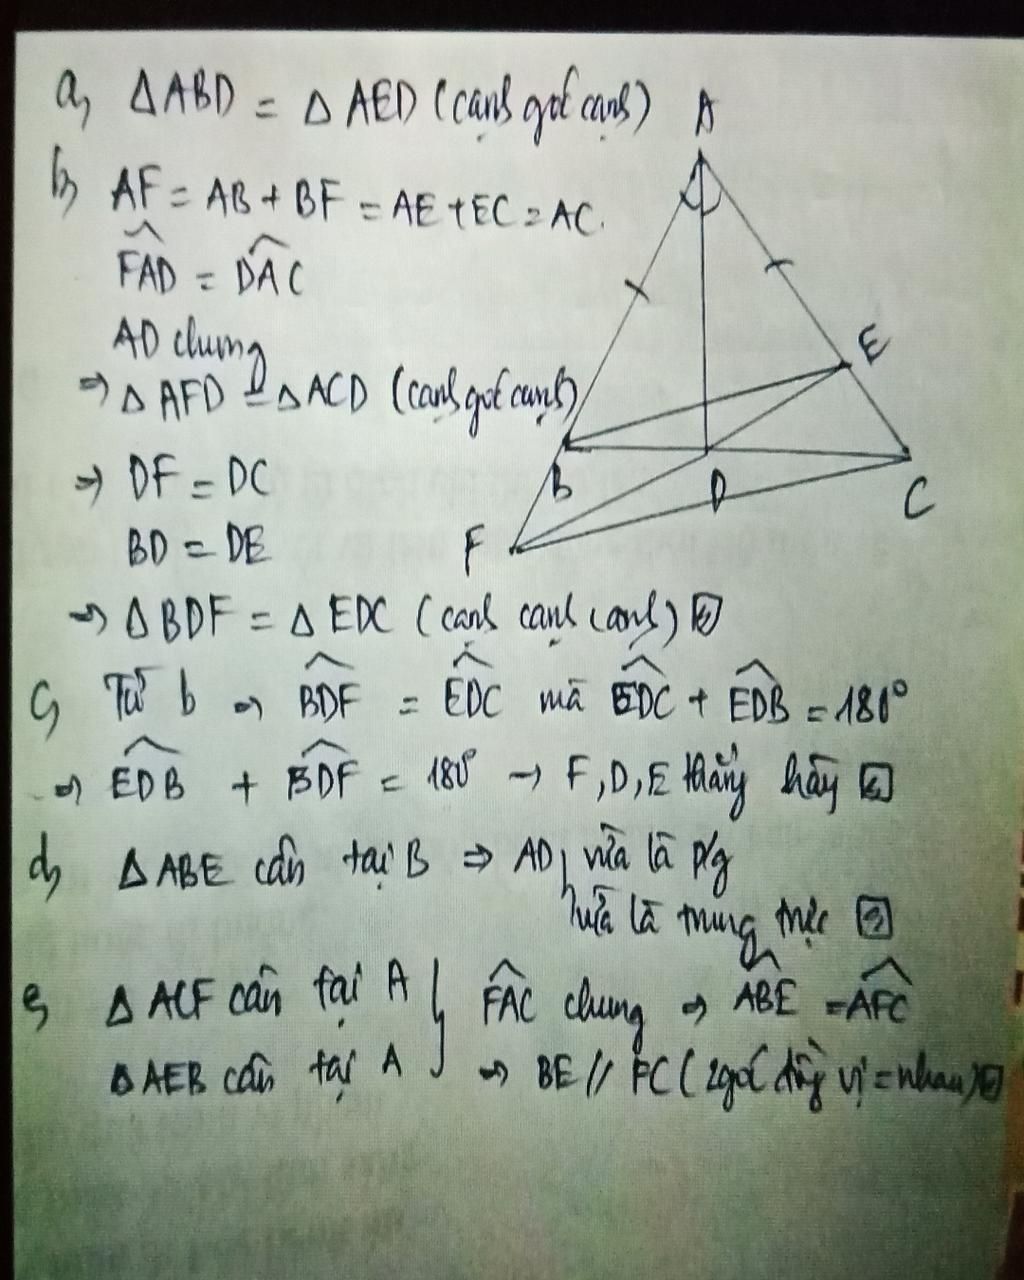 a, ΔABD = ΔAED (cạnh góc cạnh)
b, AF = AB + BF = AE + EC = AC.
FAD^ = DAC^
AD chung
⇒ ΔAFD = ΔACD (cạnh góc cạnh)
⇒ DF = DC
BD = DE
⇒ ΔBDF = ΔEDC (cạnh cạnh cạnh)
c, Từ b ⇒ BDF^ = EDC^ mà EDC^ + EDB^ = 180°
⇒ EDB^ + BDF^ = 180° → F, D, E thẳng hàng
d, ΔABE cân tại B ⇒ AD vừa là p/g
vừa là trung trực
e, ΔACF cân tại A } FAC^ chung ⇒ ABE^ = AFC^
ΔAEB cân tại A ⇒ BE // FC (2 góc đồng vị = nhau)
A
E
B
D
C
F